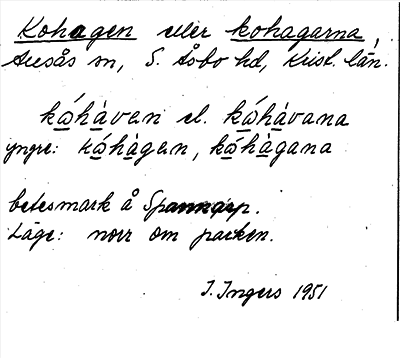 Kohagen eller kohagarna,
Århus sn, S. Åsbo hd, Krist. län.
kóhàvan el. kóhàvana
yngre: kóhàgen, kóhàgana
betesmark å Spannarp.
Läge: norr om parken.
I. Ingers 1951